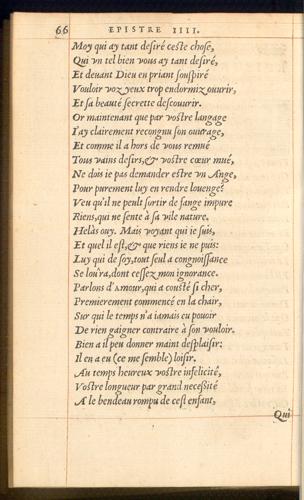 66 EPISTRE IIII.
Moy qui ay tant desiré ceste chose,
Qui vn tel bien vous ay tant desiré,
Et deuant Dieu en priant souspiré
Vouloir voz yeux trop endormiz ouurir,
Et sa beauté secrette descouurir.
Or maintenant que par vostre langage
I'ay clairement recongnu son ouurage,
Et comme il a hors de vous remué
Tous vains desirs, & vostre cœur mué,
Ne dois ie pas demander estre vn Ange,
Pour purement luy en rendre louenge?
Veu qu'il ne peult sortir de fange impure
Riens, qui ne sente à sa vile nature.
Helàs ouy. Mais voyant qui ie suis,
Et quel il est, & que riens ie ne puis:
Luy qui de soy, tout seul a congnoissance
Se lou'ra, dont cessez mon ignorance.
Parlons d'Amour, qui a cousté si cher,
Premierement commencé en la chair,
Sur qui le temps n'a iamais eu pouoir
De rien gaigner contraire à son vouloir.
Bien a il peu donner maint desplaisir:
Il en a eu (ce me semble) loisir.
Au temps heureux vostre infelicité,
Vostre longueur par grand necessité
A le bendeau rompu de cest enfant,
Qui